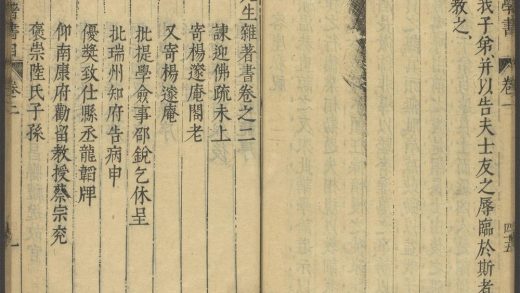 學書
卷一
我子弟并以告夫士友之辱臨於斯者
教之
四五
生雜著書卷之二
諫迎佛疏未上
寄楊邃庵閣老
又寄楊邃庵
批提學僉事邵銳乞休呈
批瑞州知府告病申
優獎致仕縣丞龍韜牌
仰南康府勸留教授蔡宗兖
褒崇陸氏子孫
著書目
卷二
一